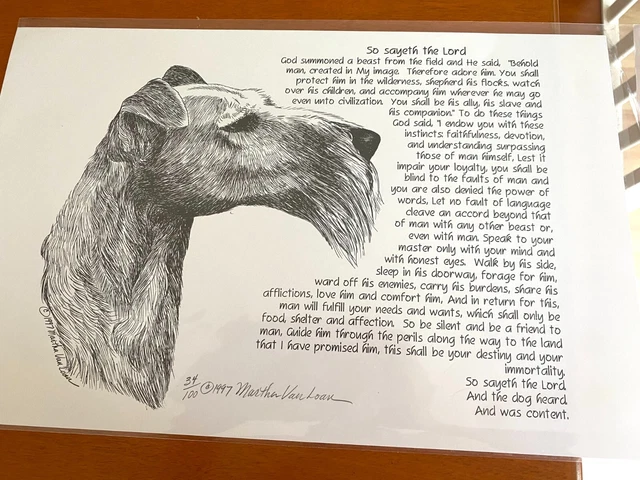 So sayeth the Lord
God summoned a beast from the field and He said, "Behold
man, created in My image. Therefore adore him. You shall
protect him in the wilderness, shepherd his flocks, watch
over his children, and accompany him wherever he may go
even unto civilization. You shall be his ally, his slave and
his companion." To do these things
God said, "I endow you with these
instincts: faithfulness, devotion,
and understanding surpassing
those of man himself, Lest it
impair your loyalty, you shall be
blind to the faults of man and
you are also denied the power of
words, Let no fault of language
cleave an accord beyond that
of man with any other beast or,
even with man. Speak to your
master only with your mind and
with honest eyes. Walk by his side,
sleep in his doorway, forage for him,
ward off his enemies, carry his burdens, share his
afflictions, love him and comfort him, And in return for this,
man will fulfill your needs and wants, which shall only be
food, shelter and affection. So be silent and be a friend to
man, Guide him through the perils along the way to the land
that I have promised him, this shall be your destiny and your
immortality.
So sayeth the Lord
And the dog heard
And was content.
©1997 Martha Van Loan
34/100 ©1997 Martha Van Loan